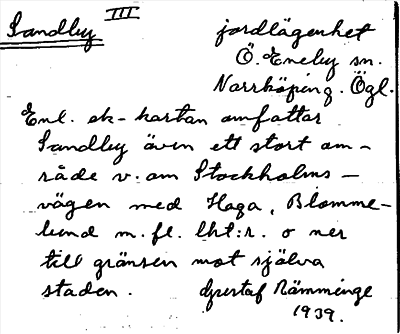 Sandby III jordlägenhet
Ö. Eneby sn.
Norrköping. Ögl.
Enl. ek-kartan omfattar
Sandby även ett stort om-
råde v. om Stockholms-
vägen med Haga, Blomme-
lund m. fl. lht:r. o ner
till gränsen mot själva
staden. Rämminge
1939.